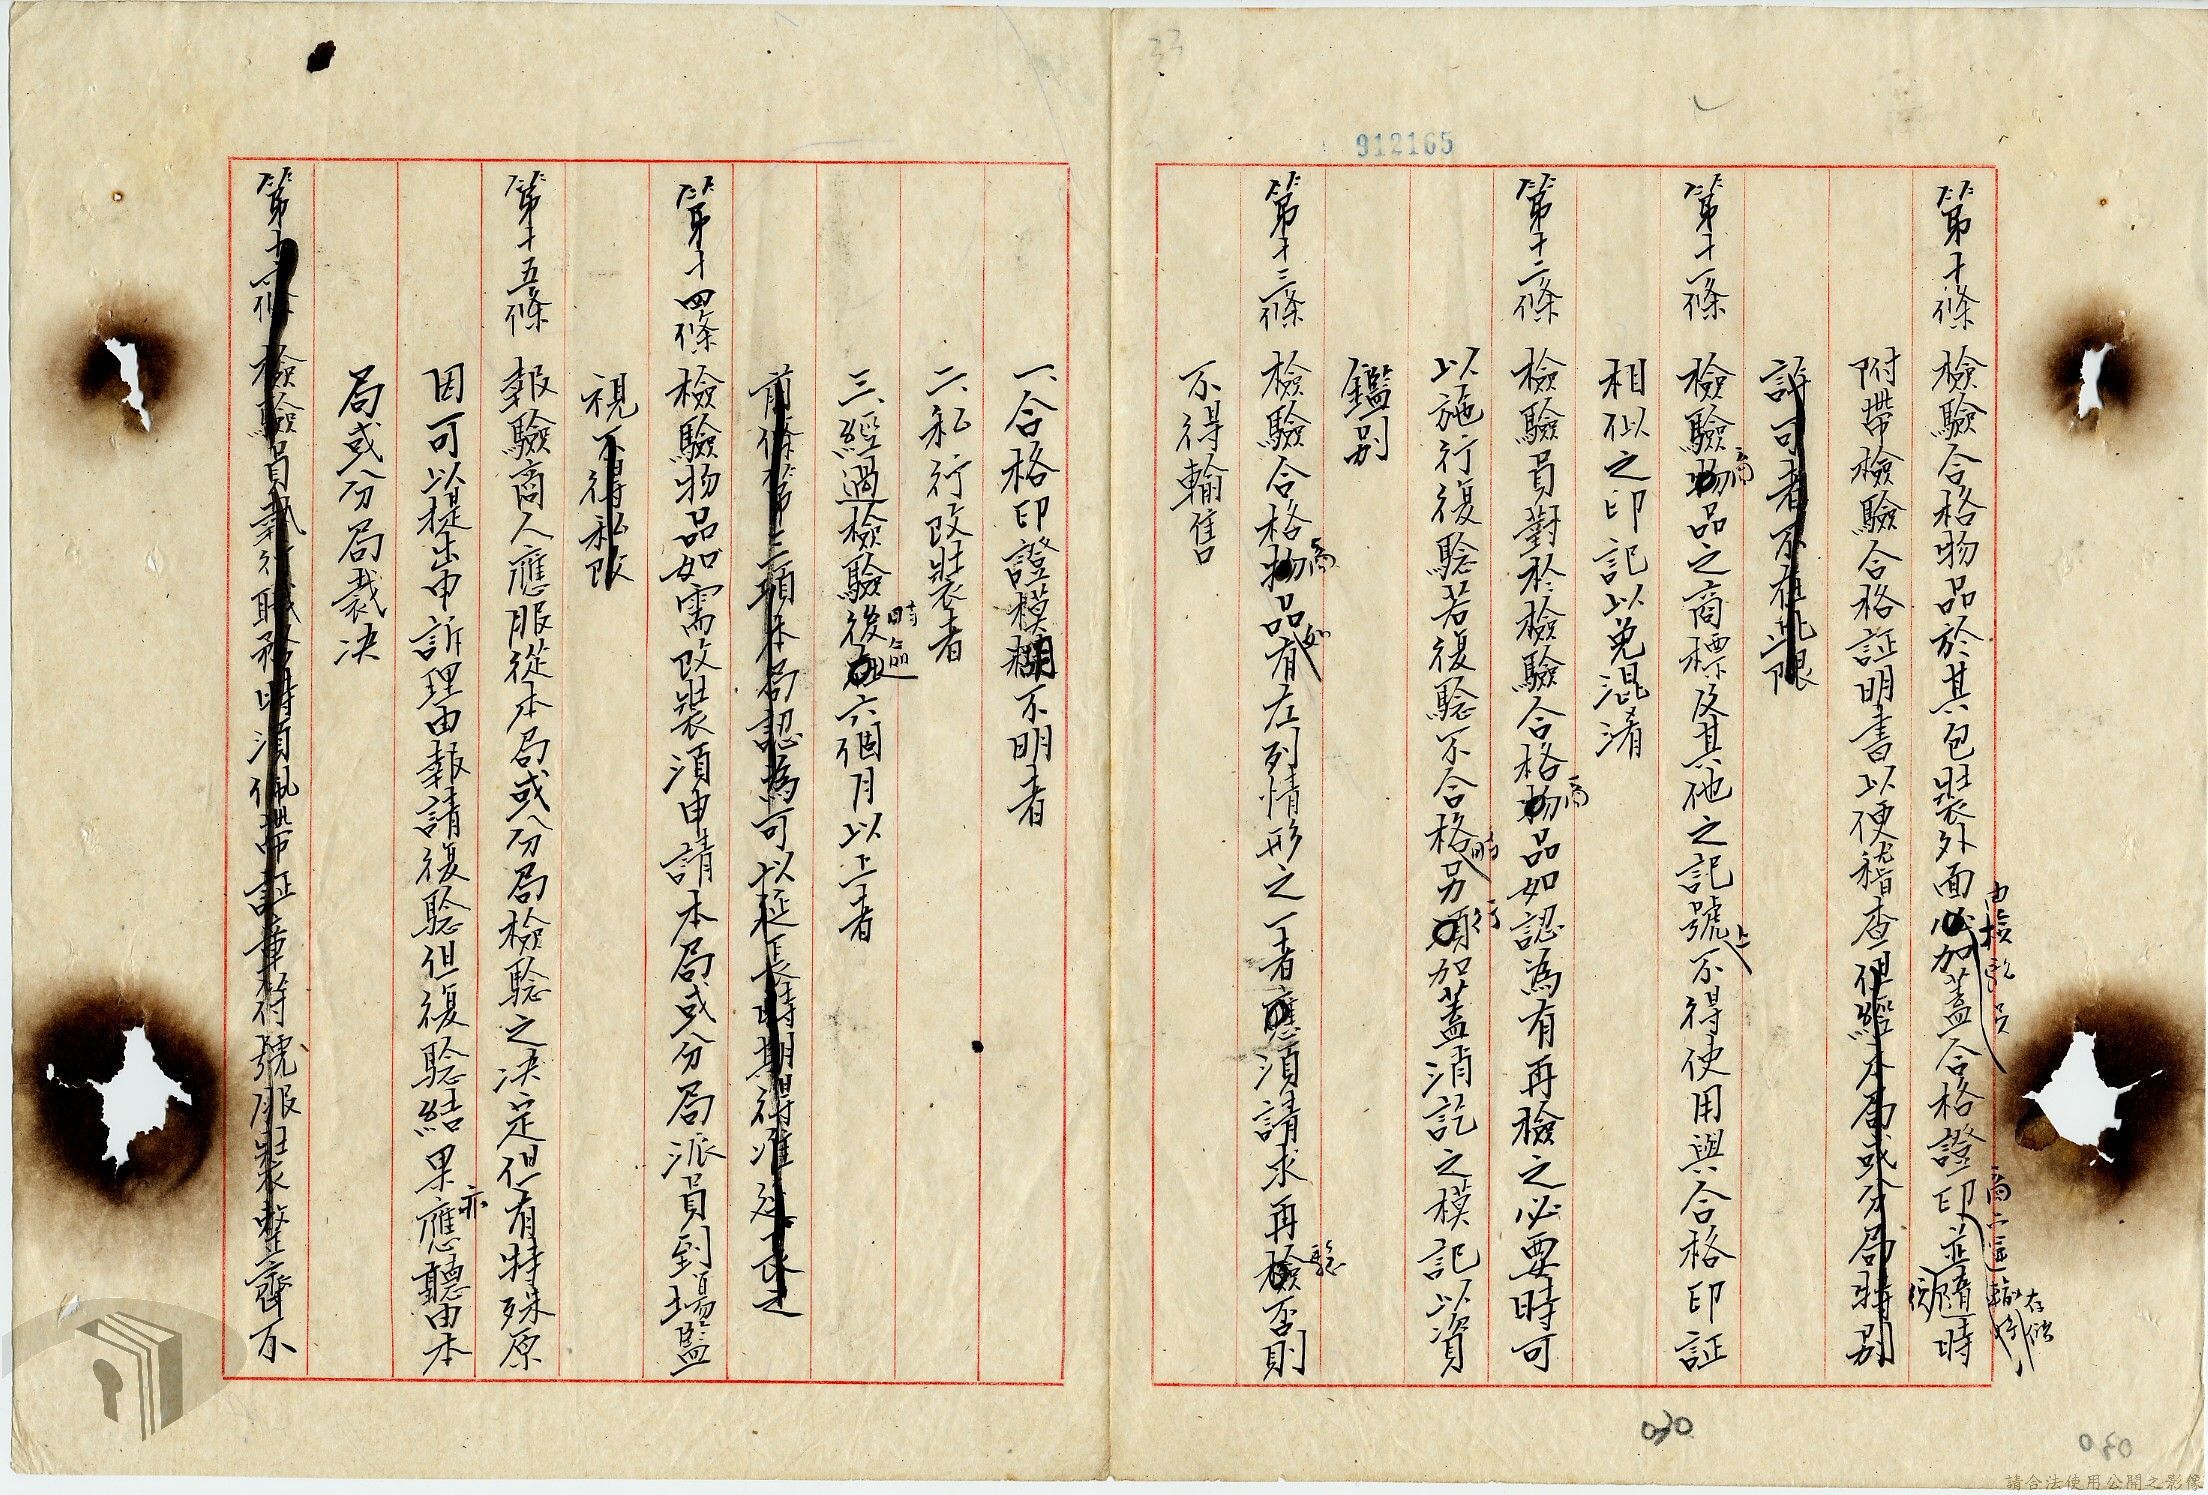 33
912165
第十條 檢驗合格物品於其包裝外面必加蓋合格證印並隨時
由檢驗員
商品
存儲
附帶檢驗合格証明書以便稽查但經本局或分局特別
許可者不在此限
第十一條 檢驗物品之商標及其他之記號不得使用與合格印証
商
上
相似之印記以免混淆
第十二條 檢驗員對於檢驗合格物品如認為有再檢之必要時可
商
以施行復驗若復驗不合格另須加蓋消訖之模記以資
時
行
鑑別
第十三條 檢驗合格物品有左列情形之一者應須請求再檢否則
商
如
驗
不得輸售
一、合格印證模糊不明者
二、私行改裝者
三、經過檢驗後 六個月以上者
時間
前條第三項本局認為可以延長時期得准延長之
第十四條 檢驗物品如需改裝須申請本局或分局派員到場監
視不得私改
第十五條 報驗商人應服從本局或分局檢驗之決定但有特殊原
因可以提出申訴理由報請復驗但復驗結果應聽由本
亦
局或分局裁決
第十六條 檢驗員執行職務時須佩帶証章符號服裝整齊不
030
030
請合法使用公開之影像